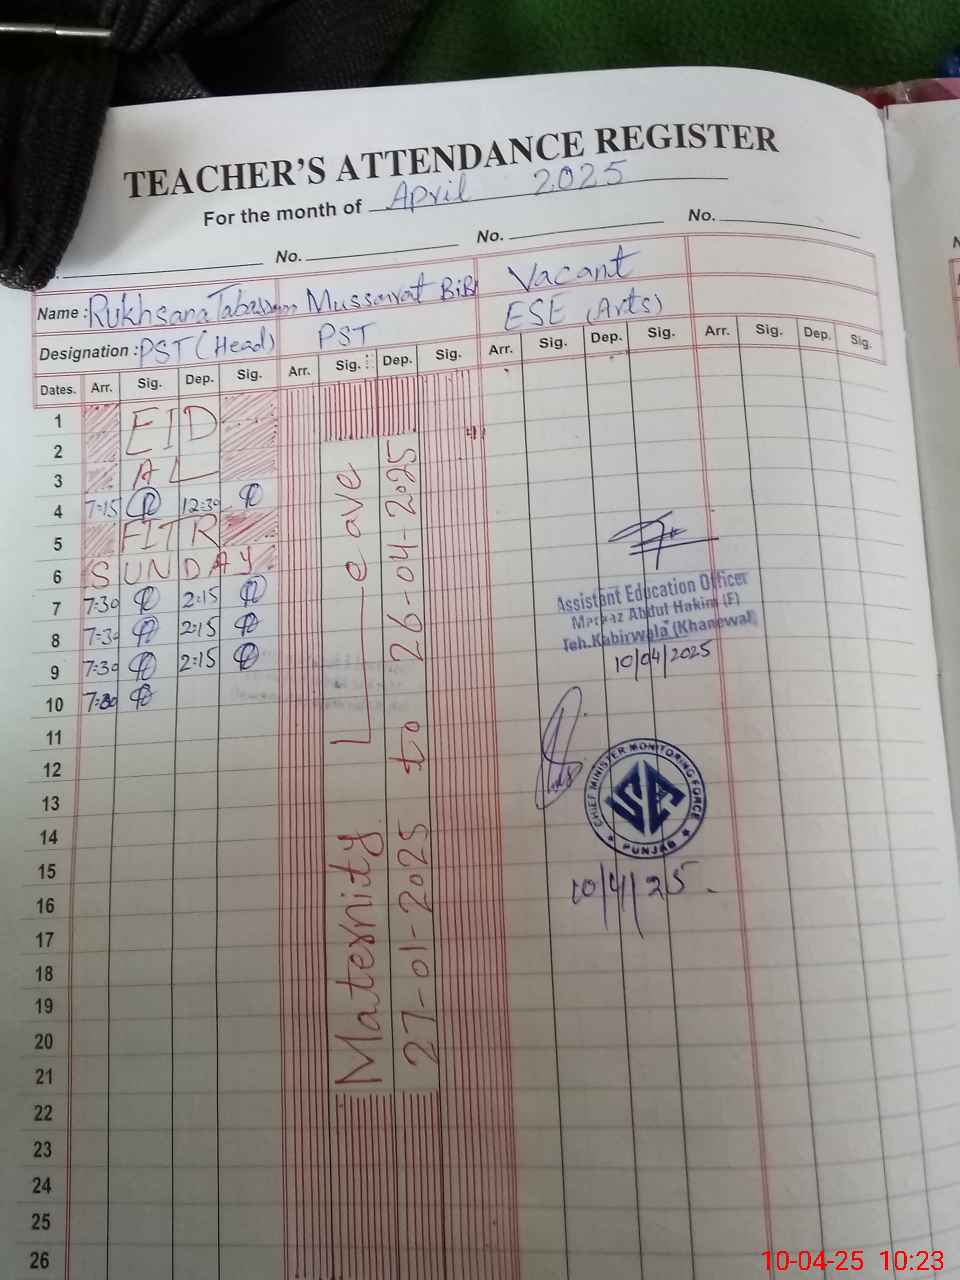 TEACHER'S ATTENDANCE REGISTER
For the month of April 2025
No. No. No.
Name: Rukhsana Tabassum Mussarat BiBi Vacant
Designation: PST (Head) PST ESE (Arts)
Dates. Arr. Sig. Dep. Sig. Arr. Sig. Dep. Sig. Arr. Sig. Dep. Sig. Arr. Sig. Dep. Sig.
1 EID
2
3 AL
4 7:15 12:30
5 FITR
6 SUNDAY
7 7:30 2:15
8 7:30 2:15
9 7:30 2:15
10 7:30
11
12
13
14
15
16
17
18
19
20
21
22
23
24
25
26
Maternity Leave
27-01-2025 to 26-04-2025
Assistant Education Officer
Markaz Abdul Hakim (F)
Teh. Kabirwala (Khanewal)
10/04/2025
CHIEF MINISTER MONITORING FORCE
PUNJAB
10/4/25.
10-04-25 10:23